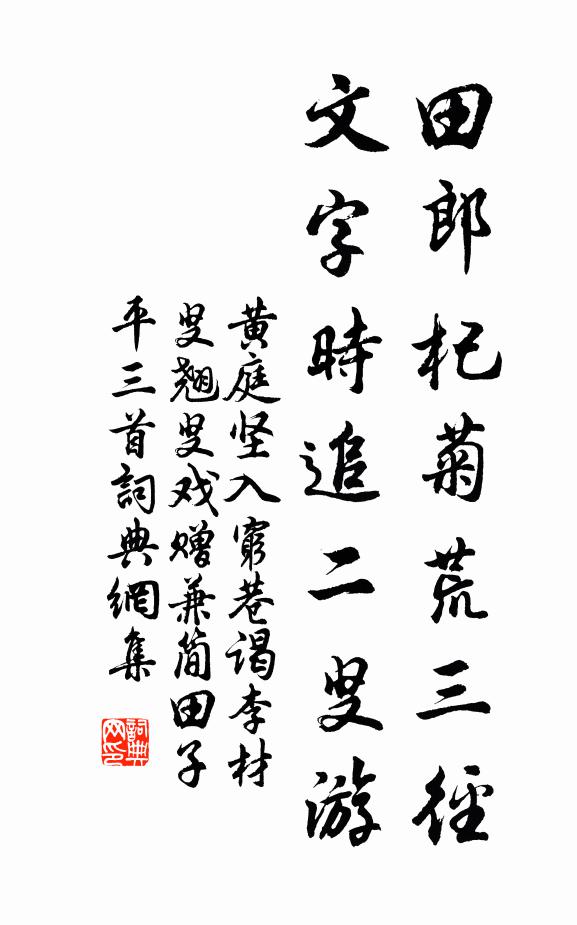 田郎杞菊荒三徑
文字時追二叟游
黄庭坚入窮巷谒李材
叟翘叟戏赠兼简田子
平三首詞典網集
詞典网印